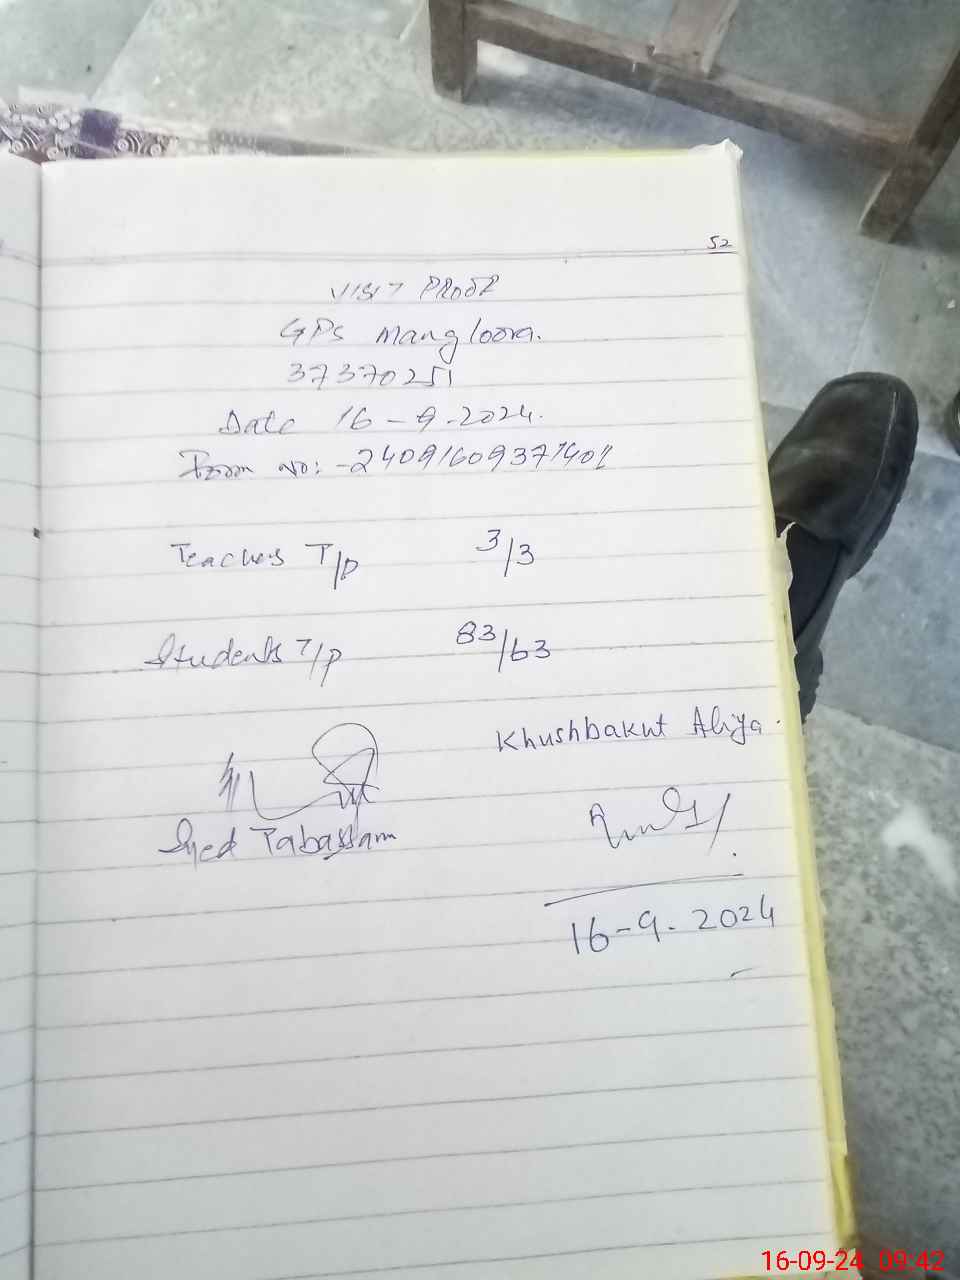 52
VISIT PROOF
GPS Mangloora.
37370251
Date 16-9-2024.
Form No:-2409160937140
Teachers T/P 3/3
Students T/P 83/63
Khushbakut Aliya.
Syed Tabassam
16-9-2024
16-09-24 09:42